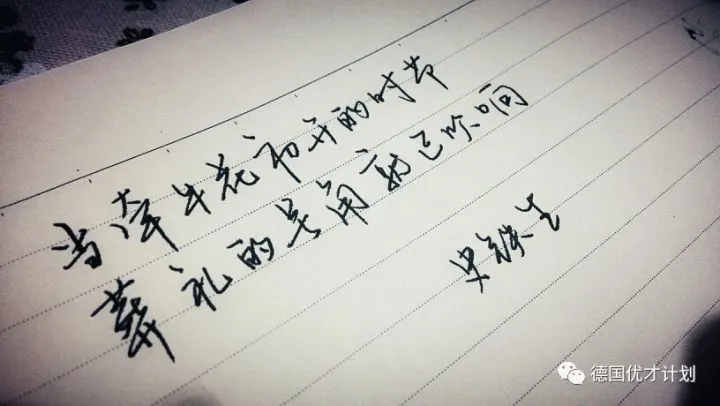 当牵牛花初开的时节
葬礼的号角就已吹响
史铁生
德国优才计划